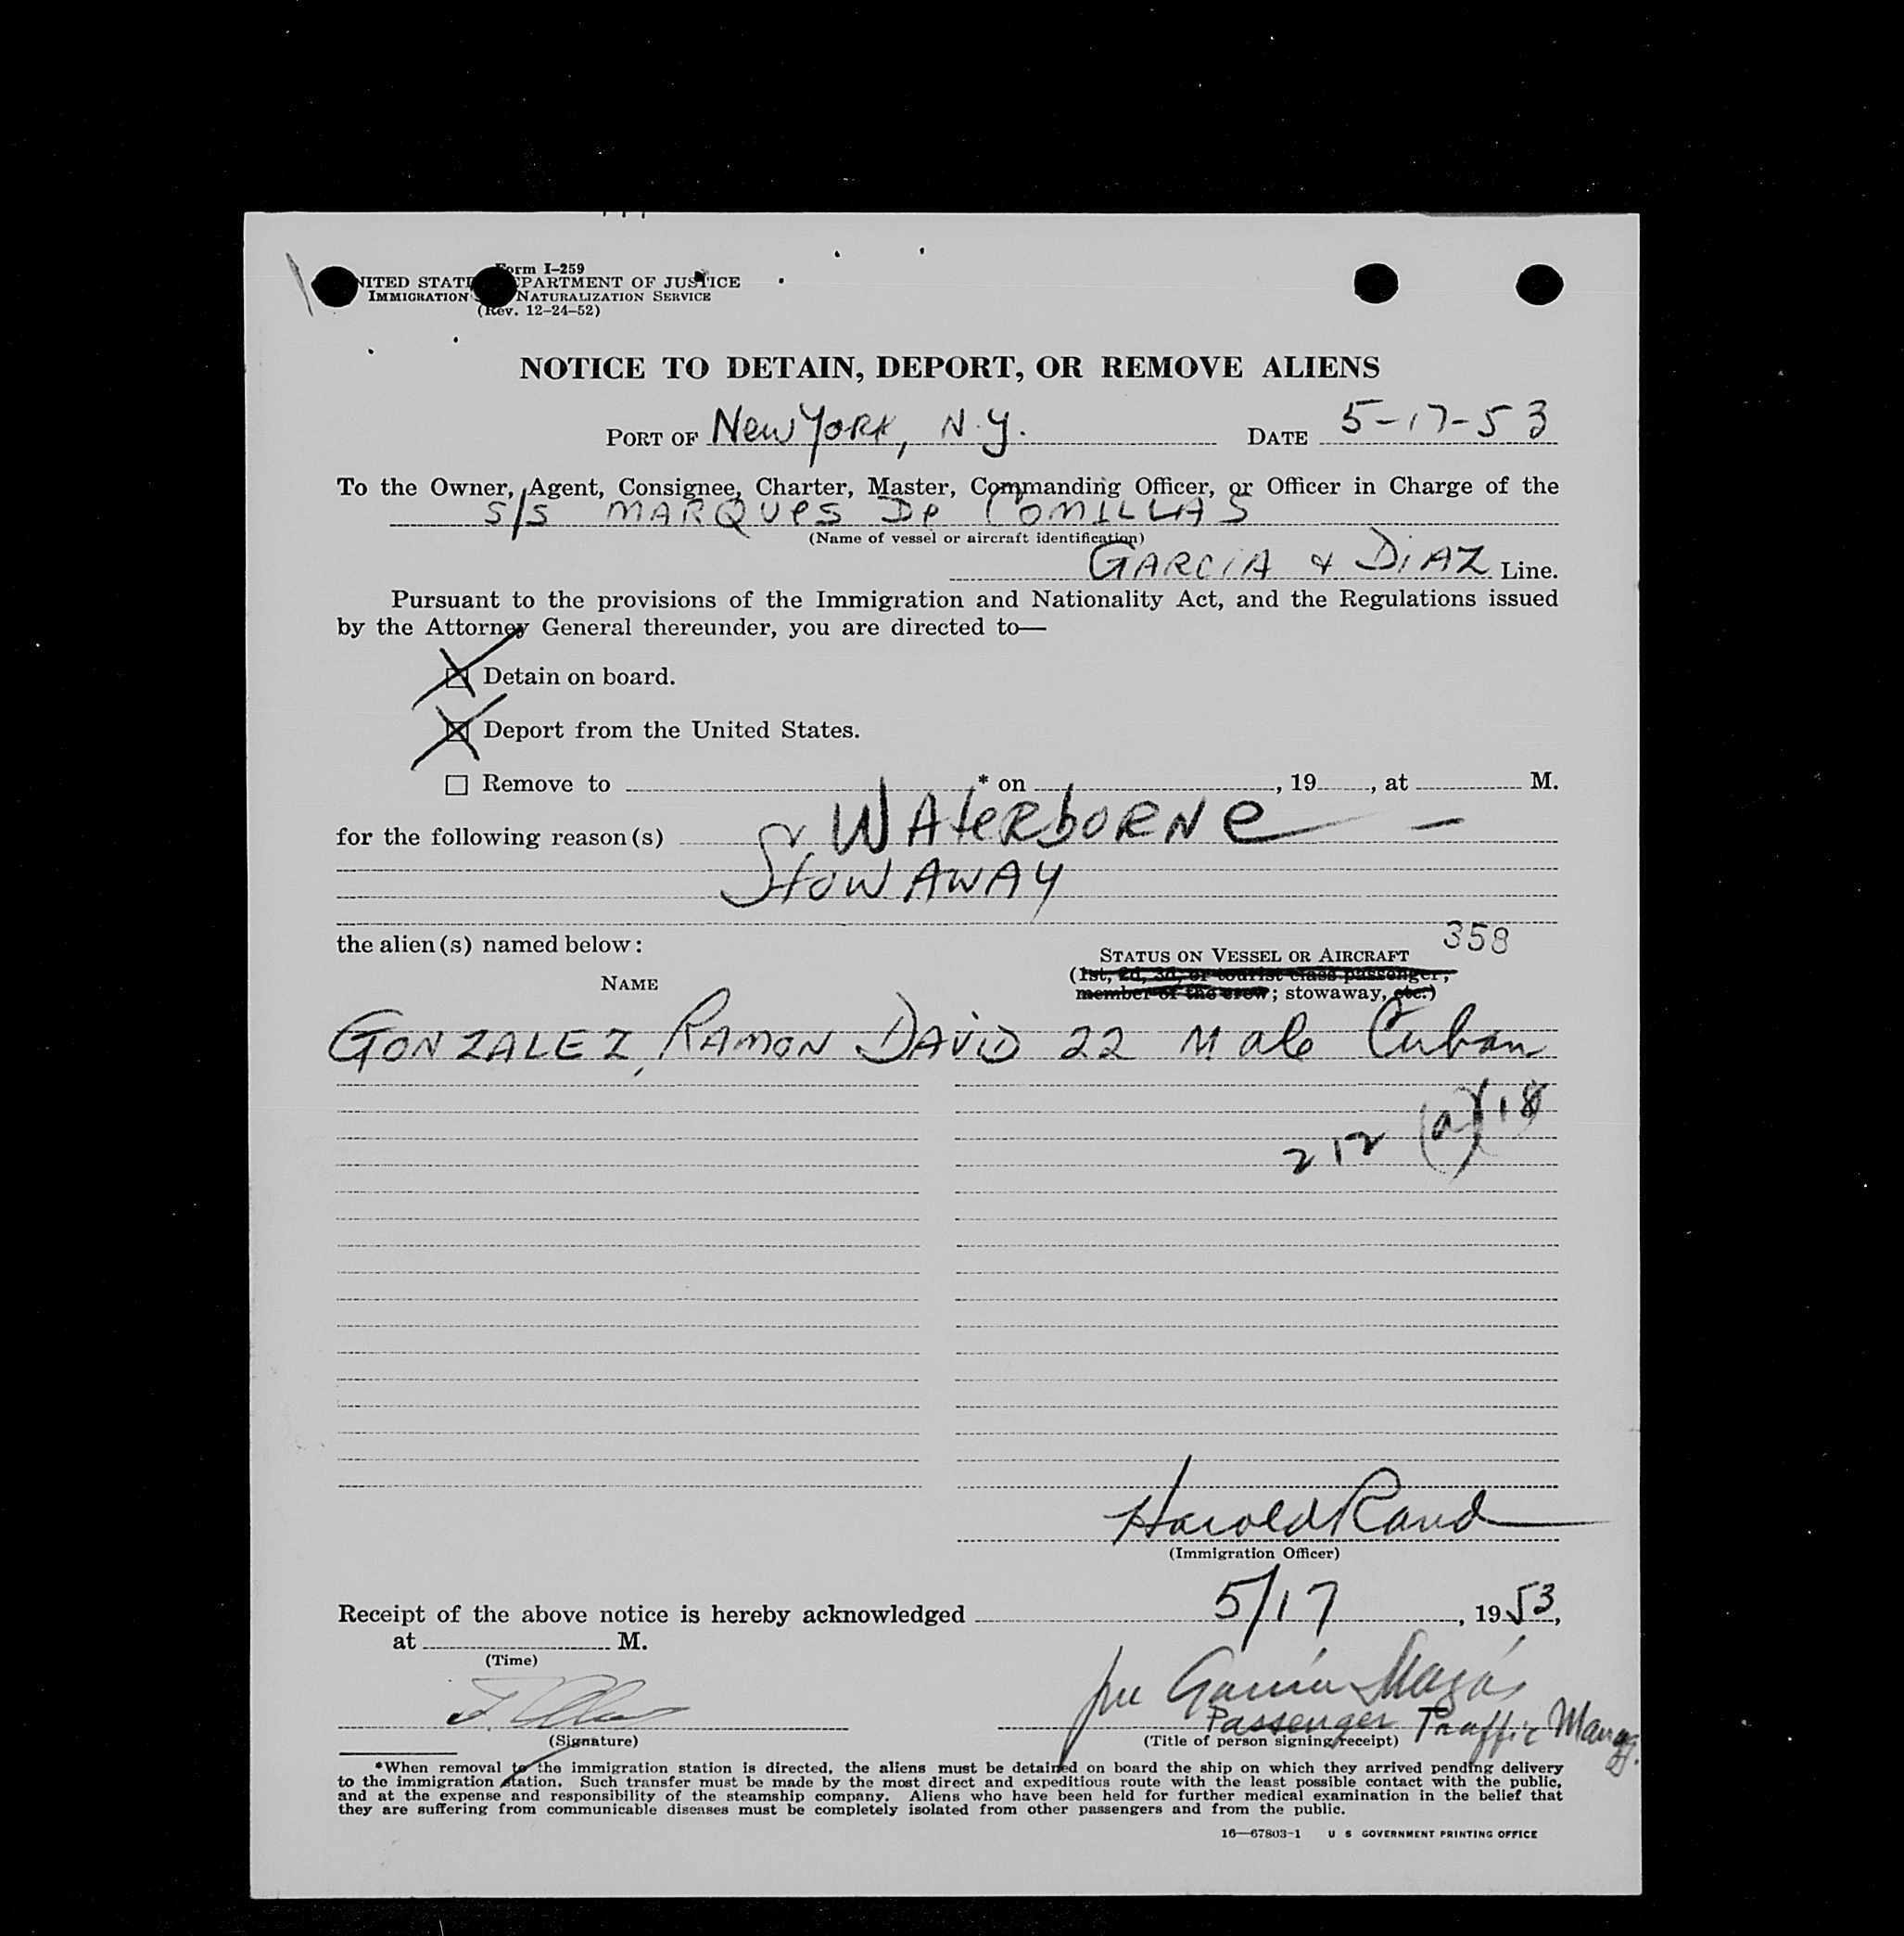 Form I-259
UNITED STATES DEPARTMENT OF JUSTICE
IMMIGRATION NATURALIZATION SERVICE
(Rev. 12-24-52)
NOTICE TO DETAIN, DEPORT, OR REMOVE ALIENS
PORT OF New York, N.Y. DATE 5-17-53
To the Owner, Agent, Consignee, Charter, Master, Commanding Officer, or Officer in Charge of the
S/S MARQUES De COMILLAS
(Name of vessel or aircraft identification)
GARCIA & DIAZ Line.
Pursuant to the provisions of the Immigration and Nationality Act, and the Regulations issued
by the Attorney General thereunder, you are directed to—
Detain on board.
Deport from the United States.
Remove to * on , 19 , at M.
for the following reason(s) WATERBORNE
STOWAWAY
the alien(s) named below:
358
STATUS ON VESSEL OR AIRCRAFT
NAME (1st, 2d, 3d, or tourist class passenger,
member of the crew; stowaway, etc.)
GONZALEZ, RAMON DAVID 22 Male Cuban
212 (a)(18
Harold Rand
(Immigration Officer)
Receipt of the above notice is hereby acknowledged 5/17, 1953,
at M.
(Time)
Garcia
Passenger Traffic Mangr.
(Signature) (Title of person signing receipt)
*When removal to the immigration station is directed, the aliens must be detained on board the ship on which they arrived pending delivery
to the immigration station. Such transfer must be made by the most direct and expeditious route with the least possible contact with the public,
and at the expense and responsibility of the steamship company. Aliens who have been held for further medical examination in the belief that
they are suffering from communicable diseases must be completely isolated from other passengers and from the public.
16—67803-1 U S GOVERNMENT PRINTING OFFICE